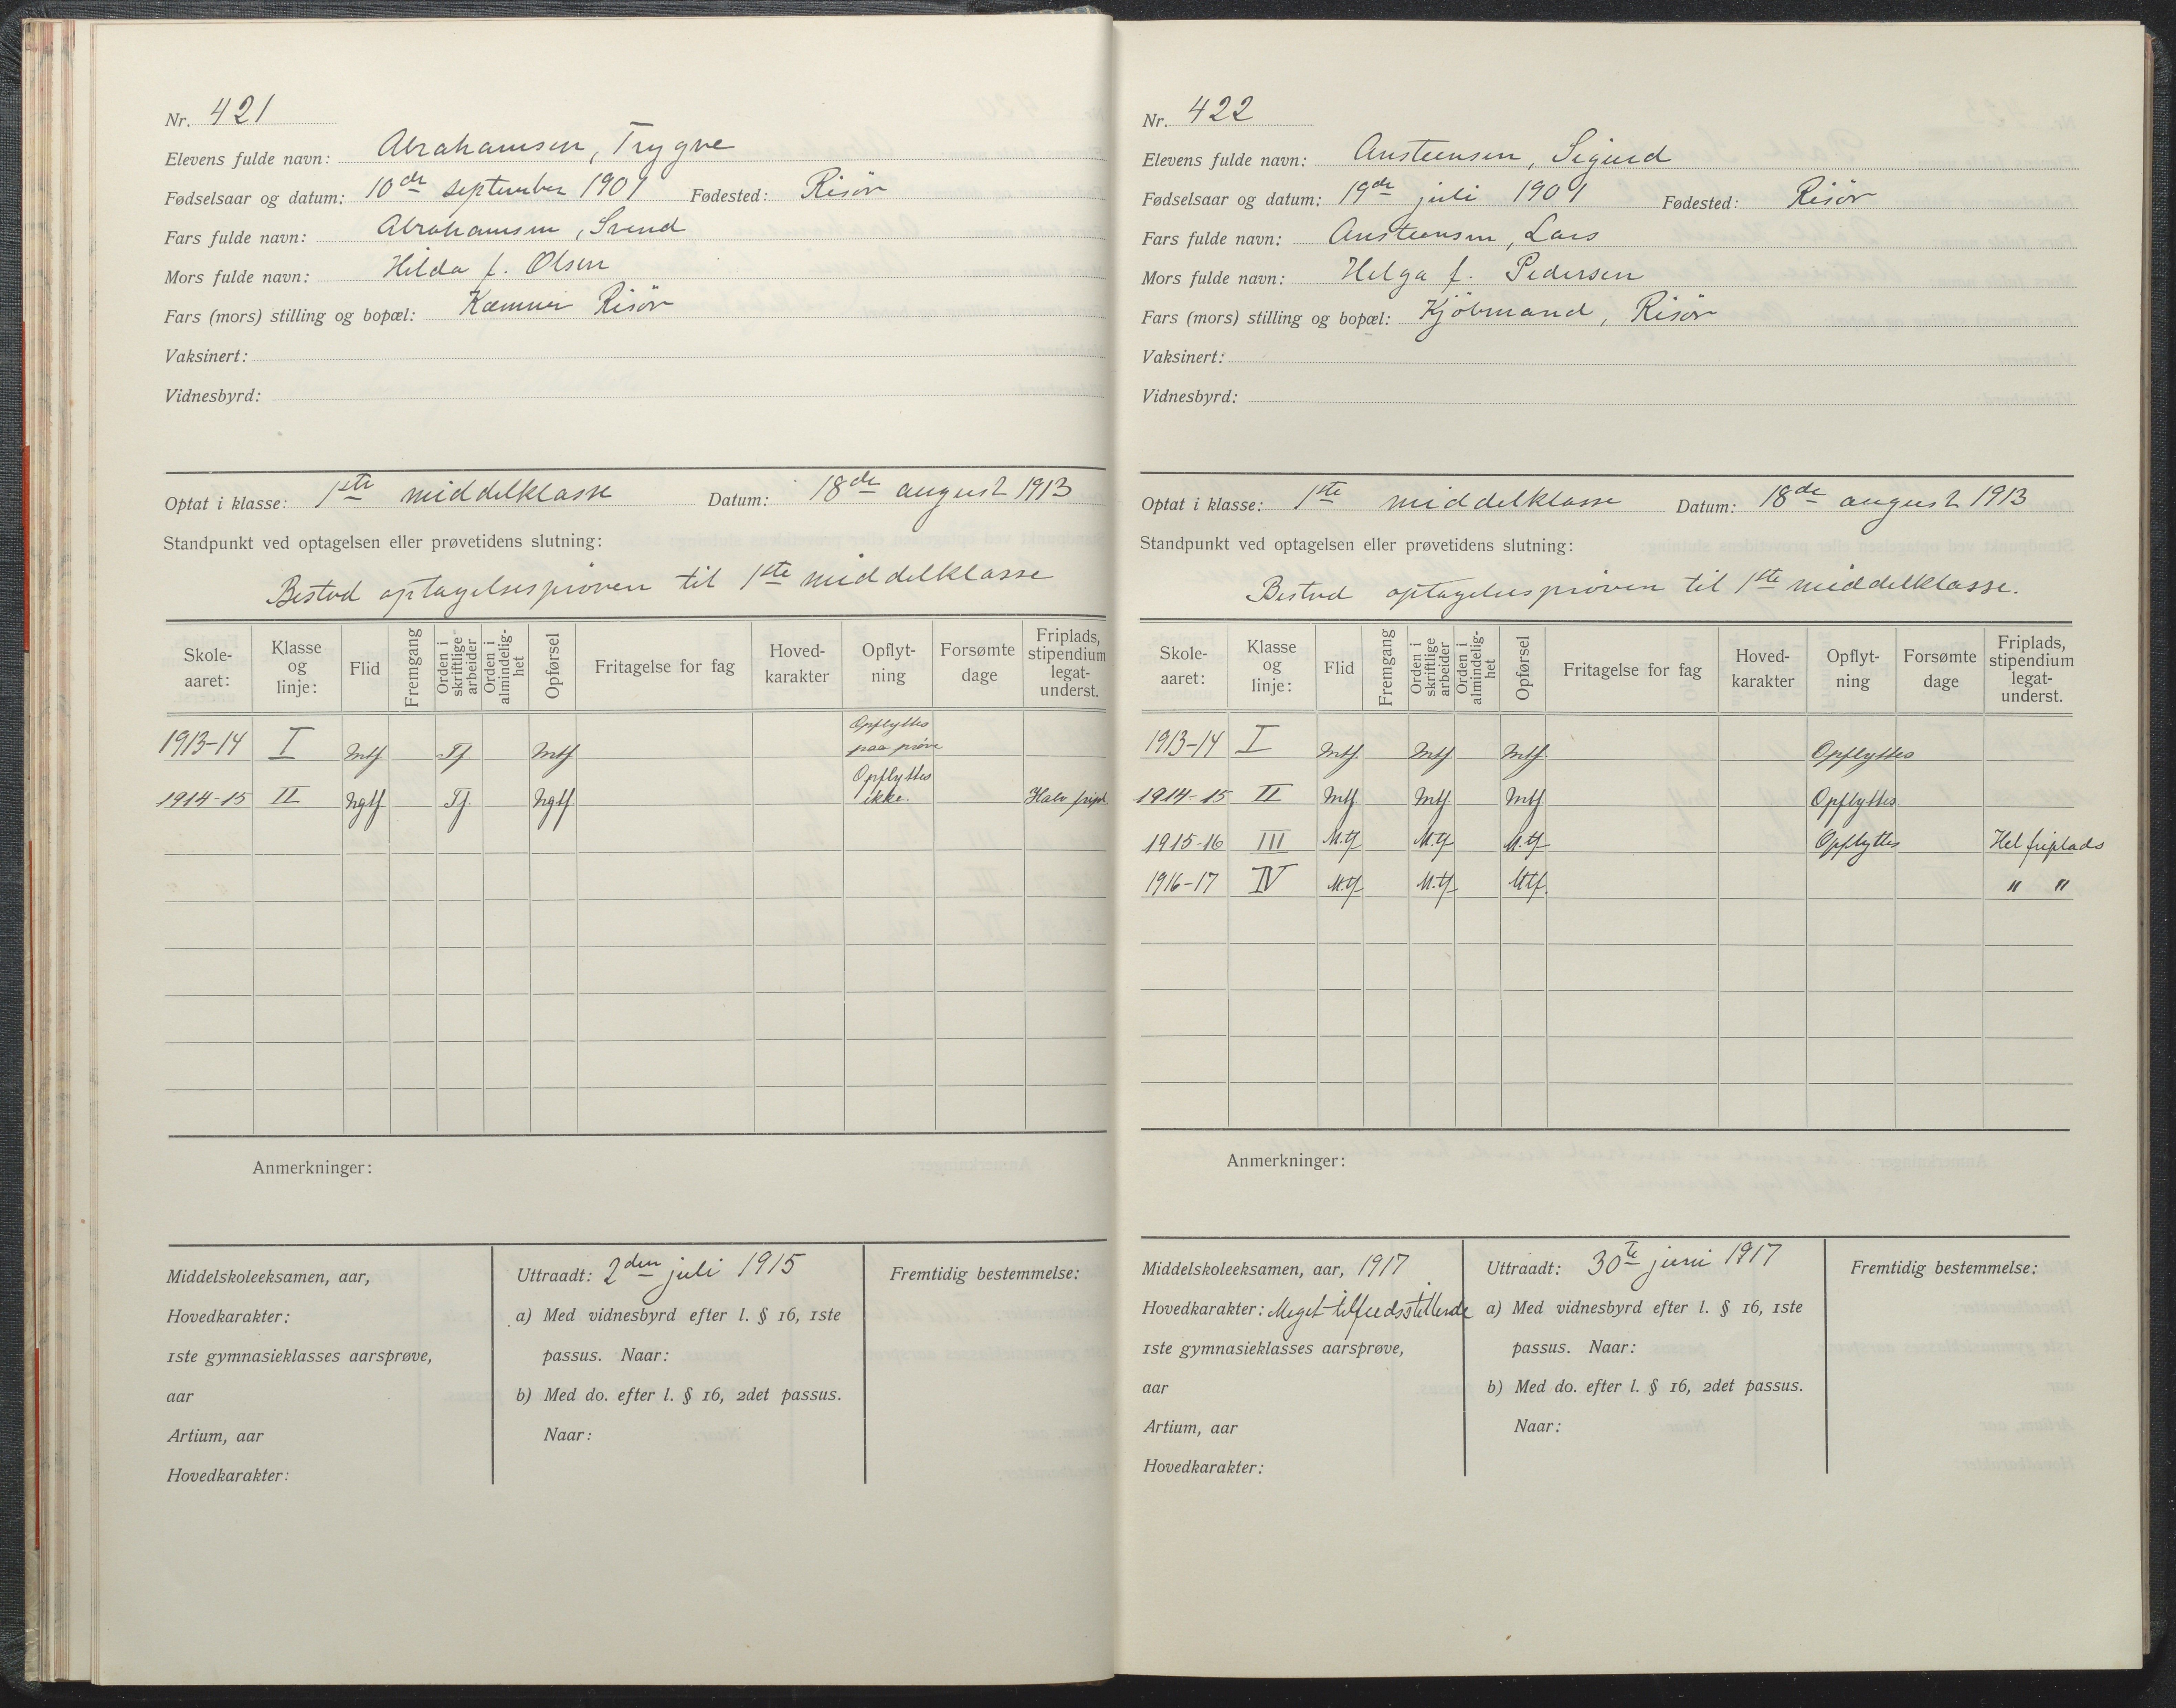 Nr. 421
Elevens fulde navn: Abrahamsen, Trygve
Fødselsaar og datum: 10de september 1901 Fødested: Risör
Fars fulde navn: Abrahamsen, Svend
Mors fulde navn: Hilda f. Olsen
Fars (mors) stilling og bopæl: Kæmner Risör
Vaksinert:
Vidnesbyrd:
Optat i klasse: 1ste middelklasse Datum: 18de august 1913
Standpunkt ved optagelsen eller prøvetidens slutning:
Bestod optagelsesprøven til 1ste middelklasse
Skole-aaret: Klasse og linje: Flid Fremgang Orden i skriftlige arbeider Orden i almindelig-het Opførsel Fritagelse for fag Hoved-karakter Opflyt-ning Forsømte dage Friplads, stipendium legat-underst.
1913-14 I Mtf Tf Mtf Opflyttes paa prøve
1914-15 II Ngtf Tf. Ngtf. Opflyttes ikke. Halv fripl
Anmerkninger:
Middelskoleeksamen, aar,
Hovedkarakter:
1ste gymnasieklasses aarsprøve,
aar
Artium, aar
Hovedkarakter:
Uttraadt: 2den juli 1915
a) Med vidnesbyrd efter l. § 16, 1ste
passus. Naar:
b) Med do. efter l. § 16, 2det passus.
Naar:
Fremtidig bestemmelse:
Nr. 422
Elevens fulde navn: Austeensen, Sigurd
Fødselsaar og datum: 19de juli 1901 Fødested: Risör
Fars fulde navn: Austeensen, Lars
Mors fulde navn: Helga f. Pedersen
Fars (mors) stilling og bopæl: Kjöbmand, Risör
Vaksinert:
Vidnesbyrd:
Optat i klasse: 1ste middelklasse Datum: 18de august 1913
Standpunkt ved optagelsen eller prøvetidens slutning:
Bestod optagelsesprøven til 1ste middelklasse.
Skole-aaret: Klasse og linje: Flid Fremgang Orden i skriftlige arbeider Orden i almindelig-het Opførsel Fritagelse for fag Hoved-karakter Opflyt-ning Forsømte dage Friplads, stipendium legat-underst.
1913-14 I Mtf. Mtf Mtf. Opflyttes
1914-15 II Mtf Mtf Mtf Opflyttes
1915-16 III M.tf M.tf M.tf Opflyttes Hel friplads
1916-17 IV M.tf M.tf Mtf. " "
Anmerkninger:
Middelskoleeksamen, aar, 1917
Hovedkarakter: Meget tilfredsstillende
1ste gymnasieklasses aarsprøve,
aar
Artium, aar
Hovedkarakter:
Uttraadt: 30te juni 1917
a) Med vidnesbyrd efter l. § 16, 1ste
passus. Naar:
b) Med do. efter l. § 16, 2det passus.
Naar:
Fremtidig bestemmelse: